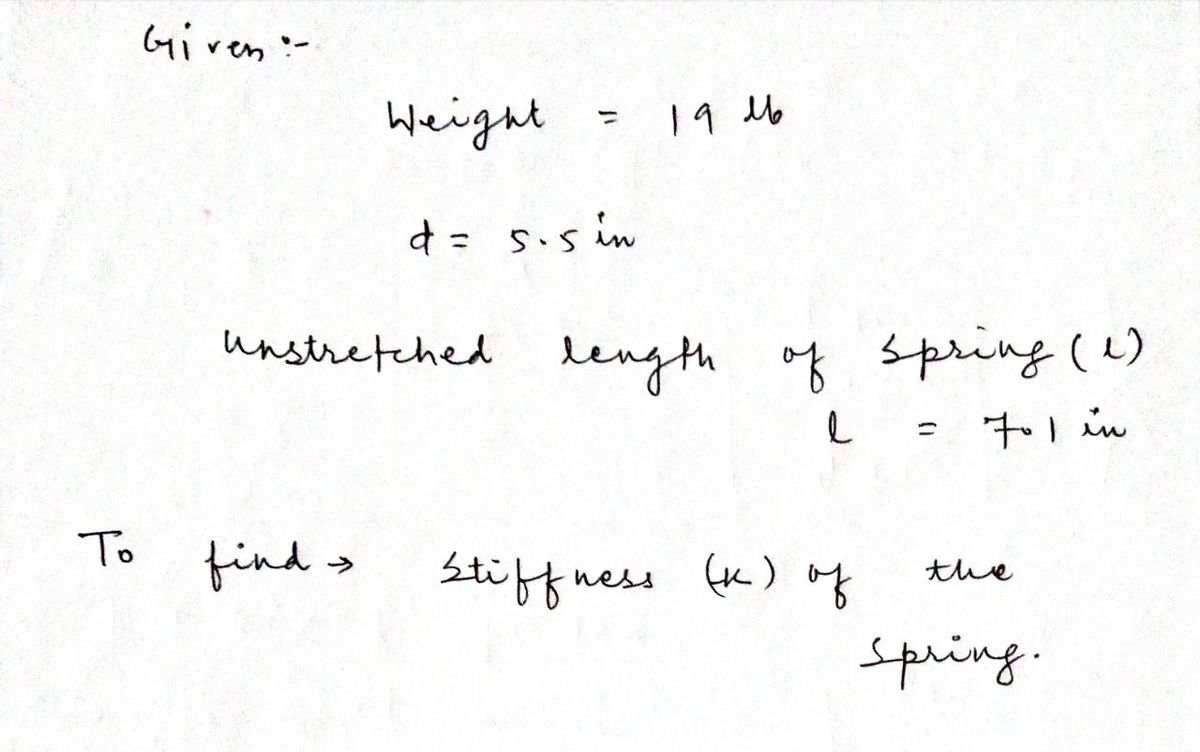 Given :-
Weight = 19 lb
d = 5.5 in
Unstretched length of spring (l)
l = 7.1 in
To find → Stiffness (k) of the
spring.